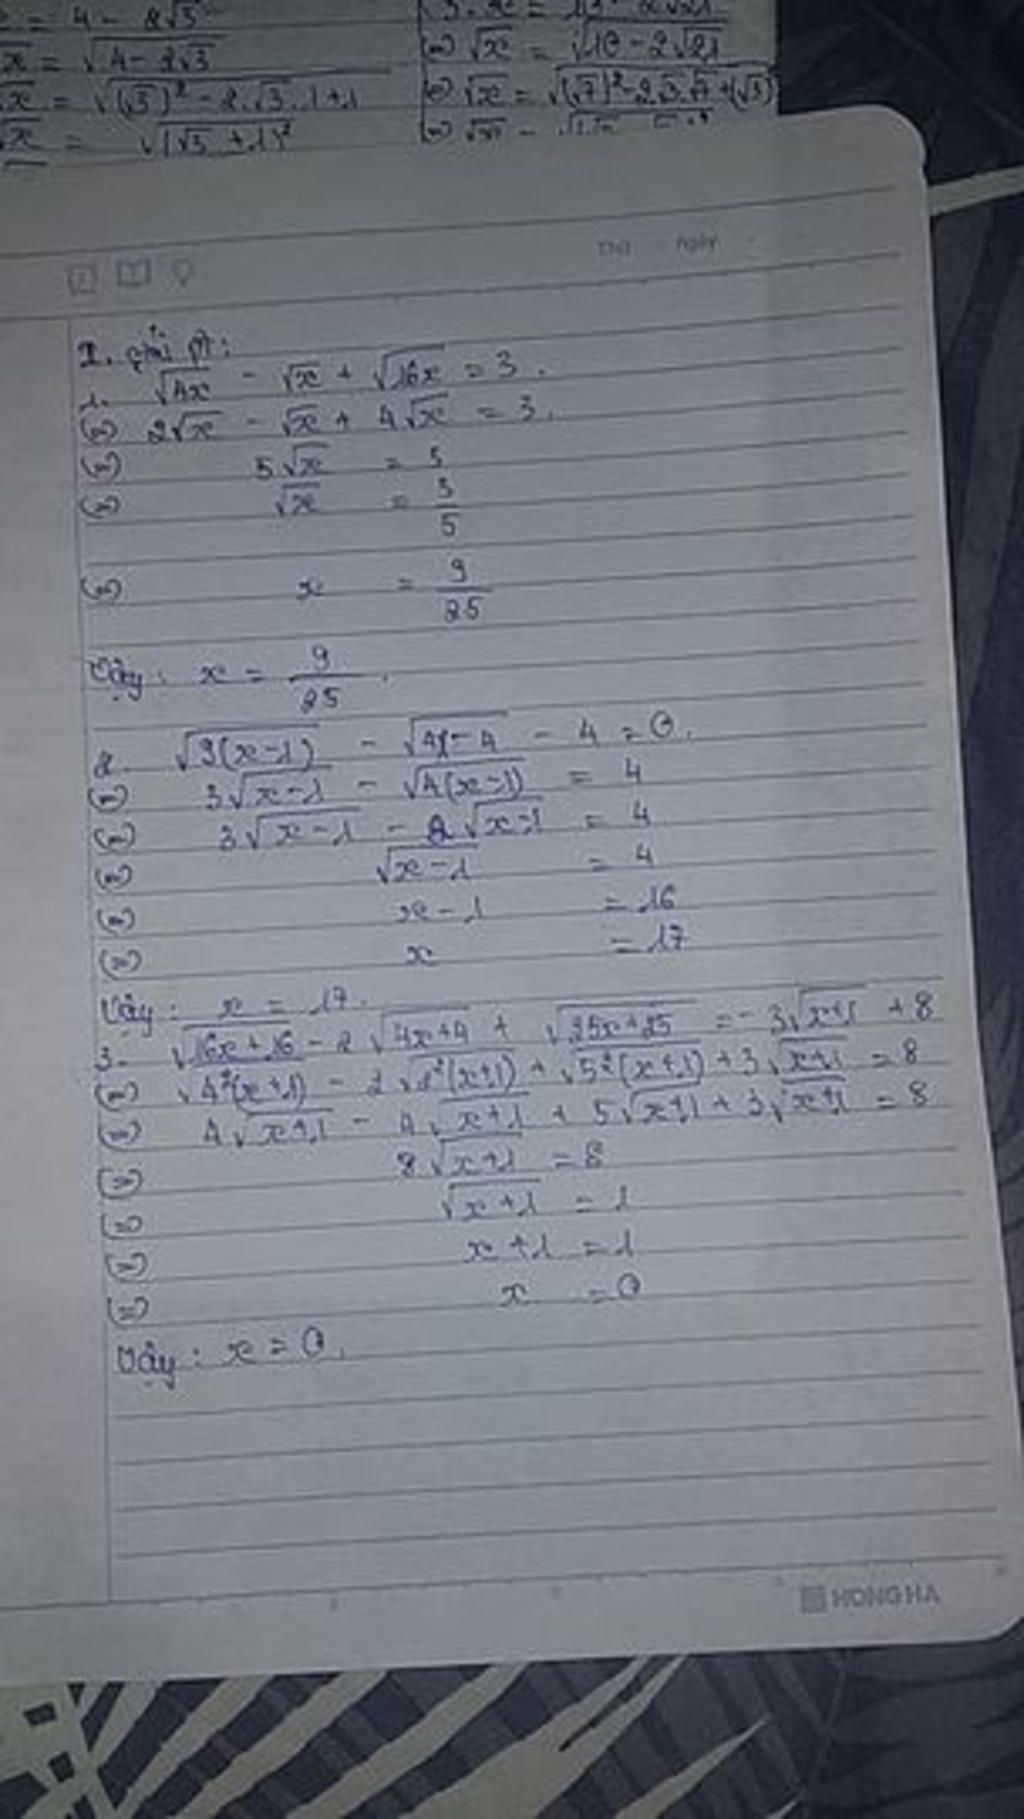 = 4 - 2√3
√x = √4-2√3
√x = √(√3)² - 2.√3.1+1
√x = √(√3+1)²
(=) √x = √10-2√21
(=) √x = √(√7)²-2√3.√7+(√3)²
Thứ ngày
I. giải pt:
1. √4x - √x + √16x = 3.
(=) 2√x - √x + 4√x = 3.
(=) 5√x = 3
(=) √x = 3/5
(=) x = 9/25
Vậy: x = 9/25.
2. √9(x-1) - √4x-4 - 4 = 0.
(=) 3√x-1 - √4(x-1) = 4
(=) 3√x-1 - 2√x-1 = 4
(=) √x-1 = 4
(=) x-1 = 16
(=) x = 17
Vậy: x = 17.
3. √16x+16 - 2√4x+4 + √25x+25 = -3√x+1 + 8
(=) √4²(x+1) - 2√2²(x+1) + √5²(x+1) + 3√x+1 = 8
(=) 4√x+1 - 4√x+1 + 5√x+1 + 3√x+1 = 8
(=) 8√x+1 = 8
(=) √x+1 = 1
(=) x+1 = 1
(=) x = 0
Vậy: x = 0.
HONG HA